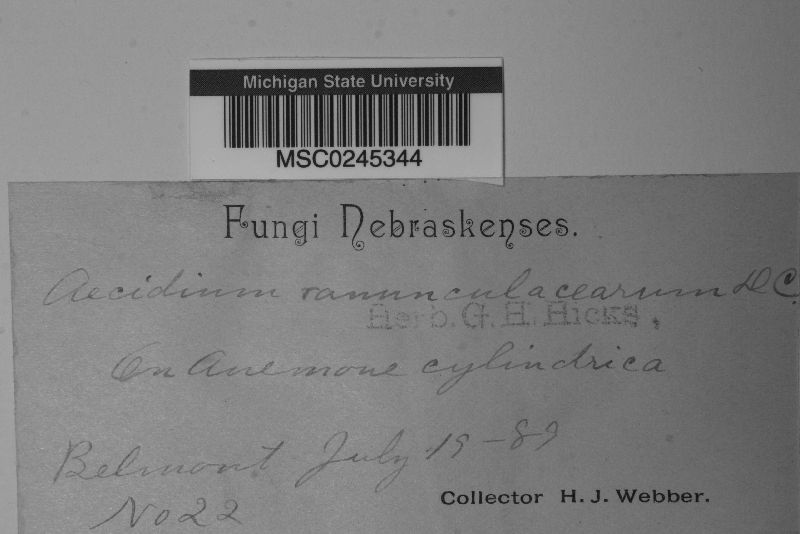 Michigan State University
MSC0245344
Fungi Nebraskenses.
Aecidium ranunculacearum DC
Herb. G. H. Hicks.
On Anemone cylindrica
Belmont July 19-89
Collector H. J. Webber.
No 22